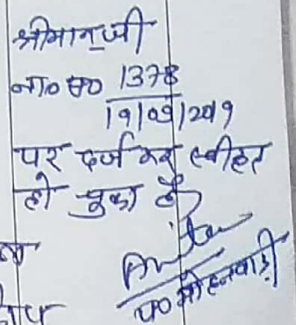 श्रीमान् जी
ना० स० 1378
19/09/2019
पर दर्ज कर स्वीकृत
हो चुका है
प० मोहनवाड़ी